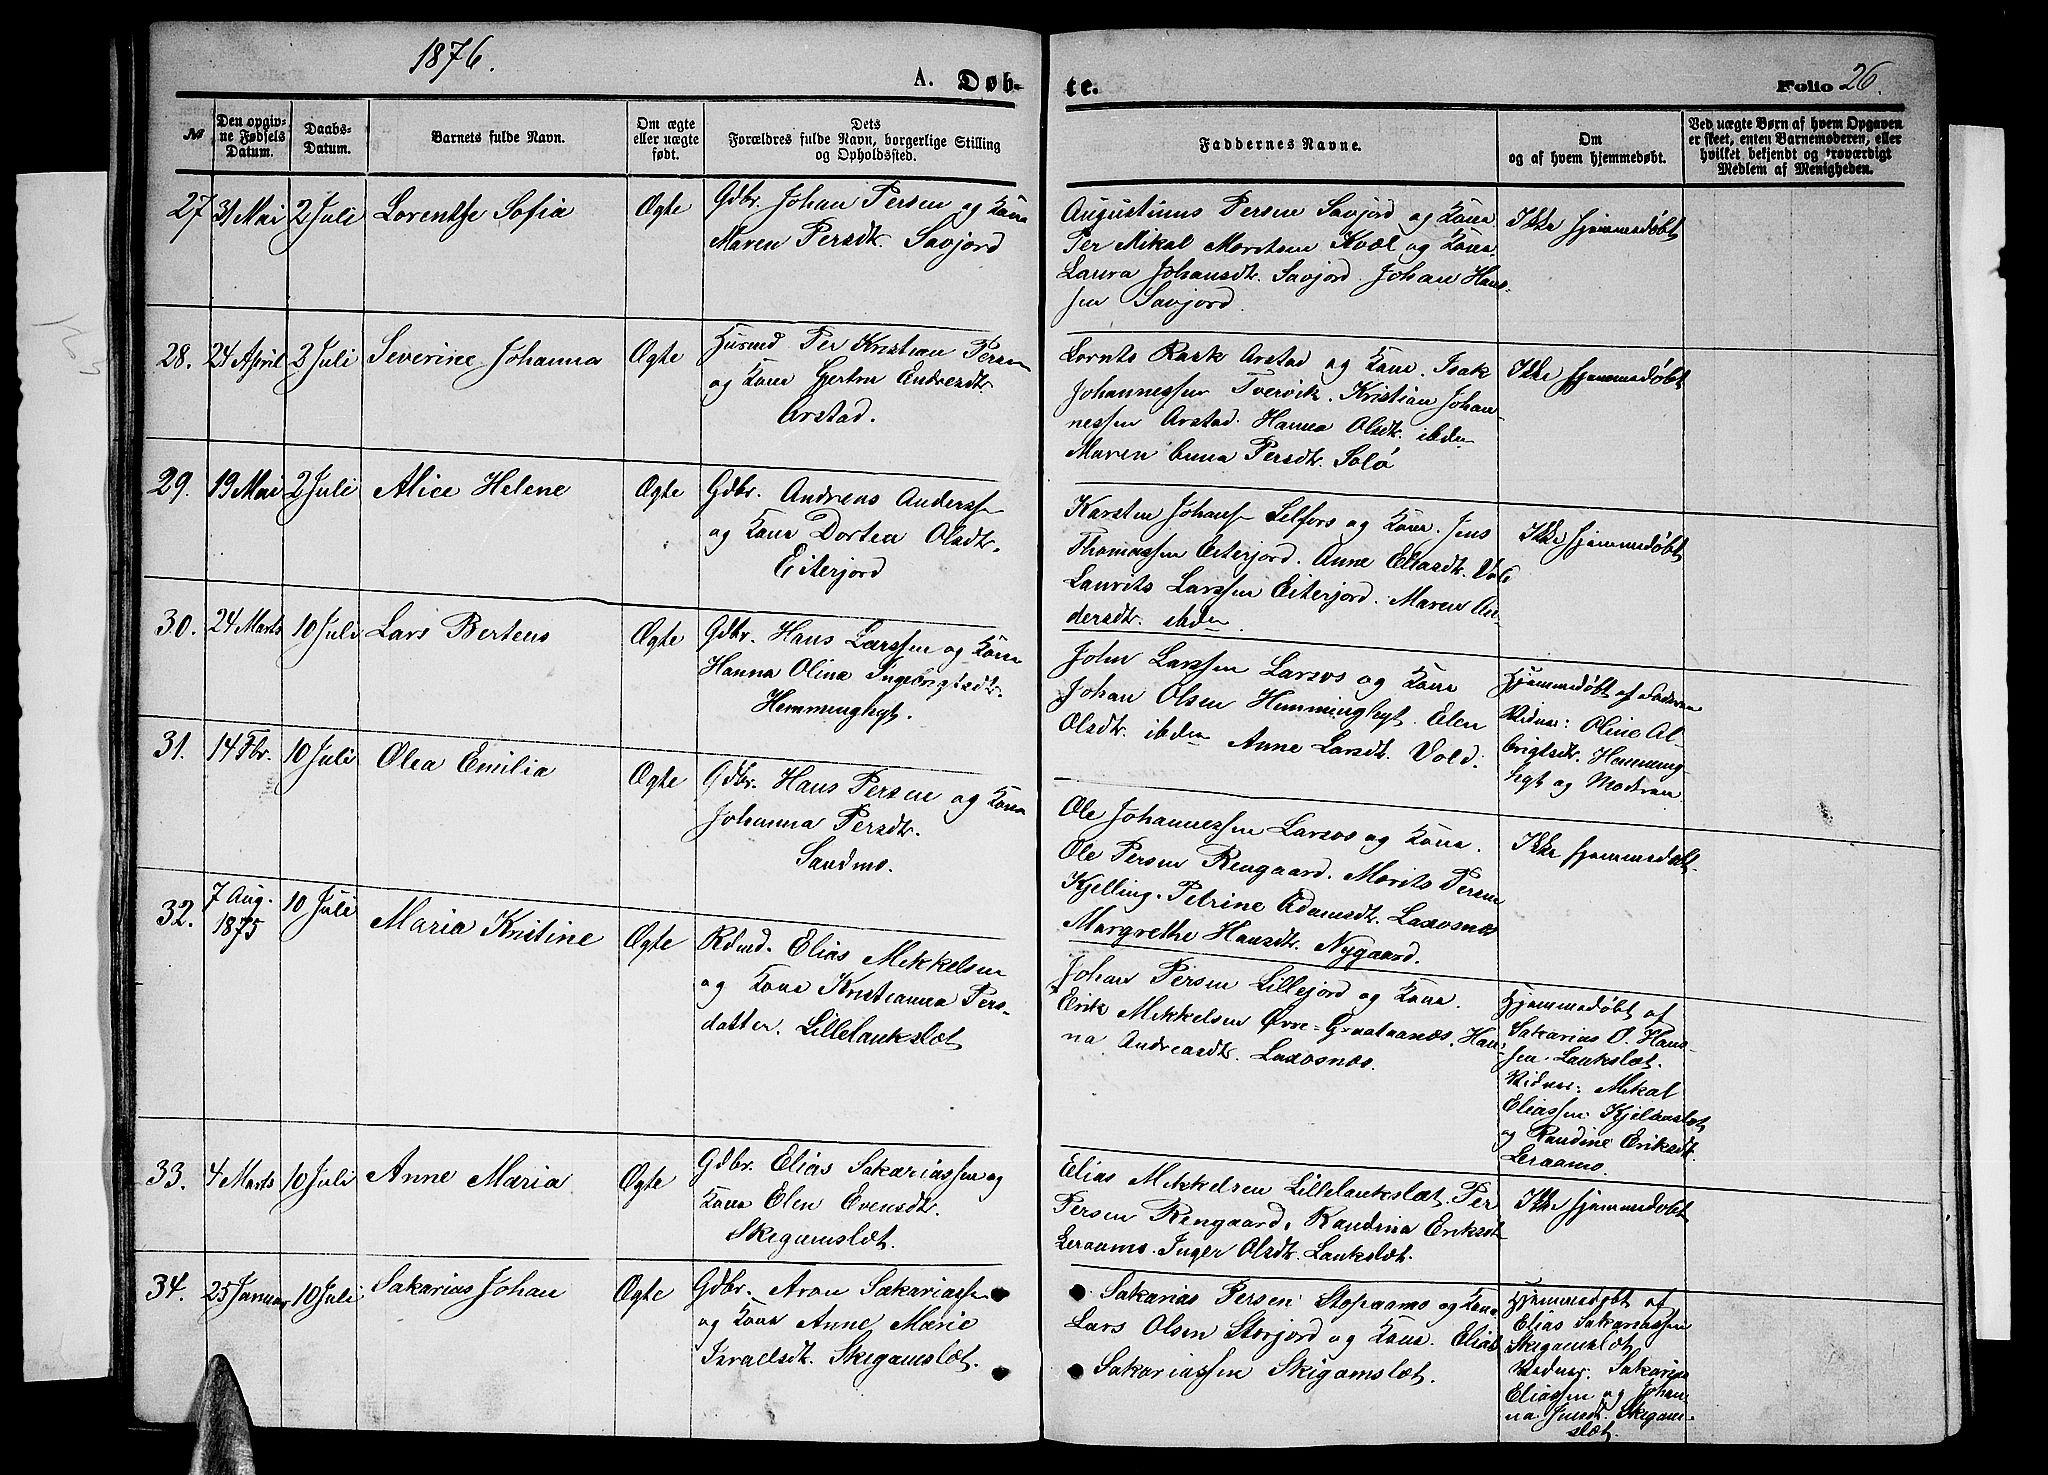 1876.
A. Døb-
te.
Folio 26.
№
Den opgiv-
ne Fødsels
Datum.
Daabs-
Datum.
Barnets fulde Navn.
Om ægte
eller uægte
født.
Dets
Forældres fulde Navn, borgerlige Stilling
og Opholdssted.
Faddernes Navne.
Om
og af hvem hjemmedøbt.
Ved uægte Børn af hvem Opgaven
er skeet, enten Barnemoderen, eller
hvilket bekjendt og troværdigt
Medlem af Menigheden.
27 31 Mai 2 Juli Lorentse Sofia Ægte
Gdbr. Johan Persen og Kone
Maren Persdtr. Savjord
Augustinus Persen Savjord og Kone.
Per Mikal Moritsen Kvæl og Kone.
Laura Johansdtr. Savjord. Johan Hans-
sen Savjord.
Ikke hjemmedøbt
28. 24 April 2 Juli Severine Johanna Ægte
Husmd Per Kristian Persen
og Kone Gjertru Andreasdtr.
Arstad.
Lornts Rask Arstad og Kone. Isak
Johannessen Tvervik. Kristian Johan-
nessen Arstad. Hanna Olsdtr. ibden
Maren Anna Persdtr. Solø
Ikke hjemmedøbt
29. 19 Mai 2 Juli Alice Helene Ægte
Gdbr. Andreas Anderssen
og Kone Dortea Olsdtr.
Eiterjord
Karsten Johans. Selfors og Kone. Jens
Thomassen Eiterjord. Anne Eliasdtr. Vold
Laurits Larssen Eiterjord. Maren An-
dersdtr. ibden.
Ikke hjemmedøbt
30. 24 Marts 10 Juli Lars Berteus Ægte
Gdbr. Hans Larssen og Kone
Hanna Oline Ingebrigtsdtr.
Hemminghyt.
John Larssen Larsos og Kone
Johan Olsen Hemminghyt. Elen
Olsdtr. ibden Anne Larsdtr. Vold.
Hjemmedøbt af Faderen
Vidner: Oline Al-
brigtsdtr. Hemming-
hyt og Modren.
31. 14 Fbr. 10 Juli Olea Emilia Ægte
Gdbr. Hans Persen og Kone
Johanna Persdtr.
Sandmo.
Ole Johannessen Larsos og Kone.
Ole Persen Rengaard. Morits Persen
Kjelling. Petrine Adamsdtr. Laxosnæs
Margrethe Hansdtr. Nygaard.
Ikke hjemmedøbt.
32. 7 Aug. 1875 10 Juli Maria Kristine Ægte
Rdmd. Elias Mikkelsen
og Kone Kristianna Pers-
datter. Lillelaukslæt
Johan Persen Lillejord og Kone.
Erik Mikkelsen Øvre-Graataanæs. Han-
na Andreasdtr. Laxosnæs.
Hjemmedøbt af
Sakarias O. Hans-
sen Laukslæt.
Vidner: Mikal
Eliassen Kjelaaslæt
og Randine Eriksdtr.
Leraamo.
33. 4 Marts 10 Juli Anne Maria Ægte
Gdbr. Elias Sakariassen og
Kone Elen Evensdtr.
Skigamslæt.
Elias Mikkelsen Lillelaukslæt. Per
Persen Rengaard. Randina Eriksdtr
Leraamo. Inger Olsdtr. Laukslæt.
Ikke hjemmedøbt
34. 25 Januar 10 Juli Sakarias Johan Ægte
Gdbr. Aron Sakariassen
og Kone Anne Marie
Israelsdtr. Skigamslæt.
Sakarias Persen Stopaamo og Kone
Lars Olsen Storjord og Kone. Elias
Sakariassen Skigamslæt.
Hjemmedøbt af
Elias Sakariassen
Skigamslæt
Vidner. Sakarias
Eliassen og Johan-
na Jensdtr. Skigam-
slæt.